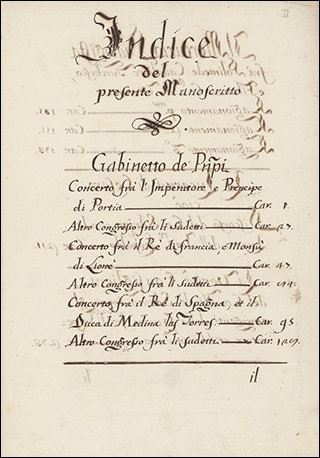 Indice
del
presente Manoscritto
Gabinetto de Prñpi
Concerto frà l'Imperatore e Prencipe
di Portia Car. 1.
Altro Congresso frà li Sudetti Car. 27.
Concerto frà il Rè di francia, e Monsù
di Lionè Car. 47.
Altro Congresso frà li Sudetti Car.
Concerto frà il Rè di Spagna, et il
Duca di Medina las Torres Car. 95.
Altro Congresso frà li sudetti Car.
il